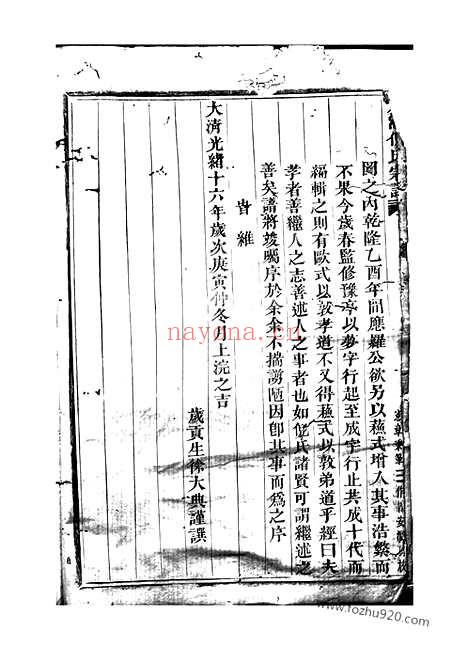 圖之內乾隆乙酉年間應羅公欲另以蘓式增入其事浩繁而
不果今歲春監修豫亭以夢字行起至成字行止共成十代而
編輯之則有歐式以敦孝道不又得蘓式以敦弟道乎經曰夫
孝者善繼人之志善述人之事者也如侊氏諸賢可謂繼述之
善矣請將竣囑序於余余不揣謭陋因卽其事而為之序
時維
大清光緒十六年歲次庚寅仲冬月上浣之吉
歲貢生徐大典謹譔
nayona.cn
www.fozhu920.com